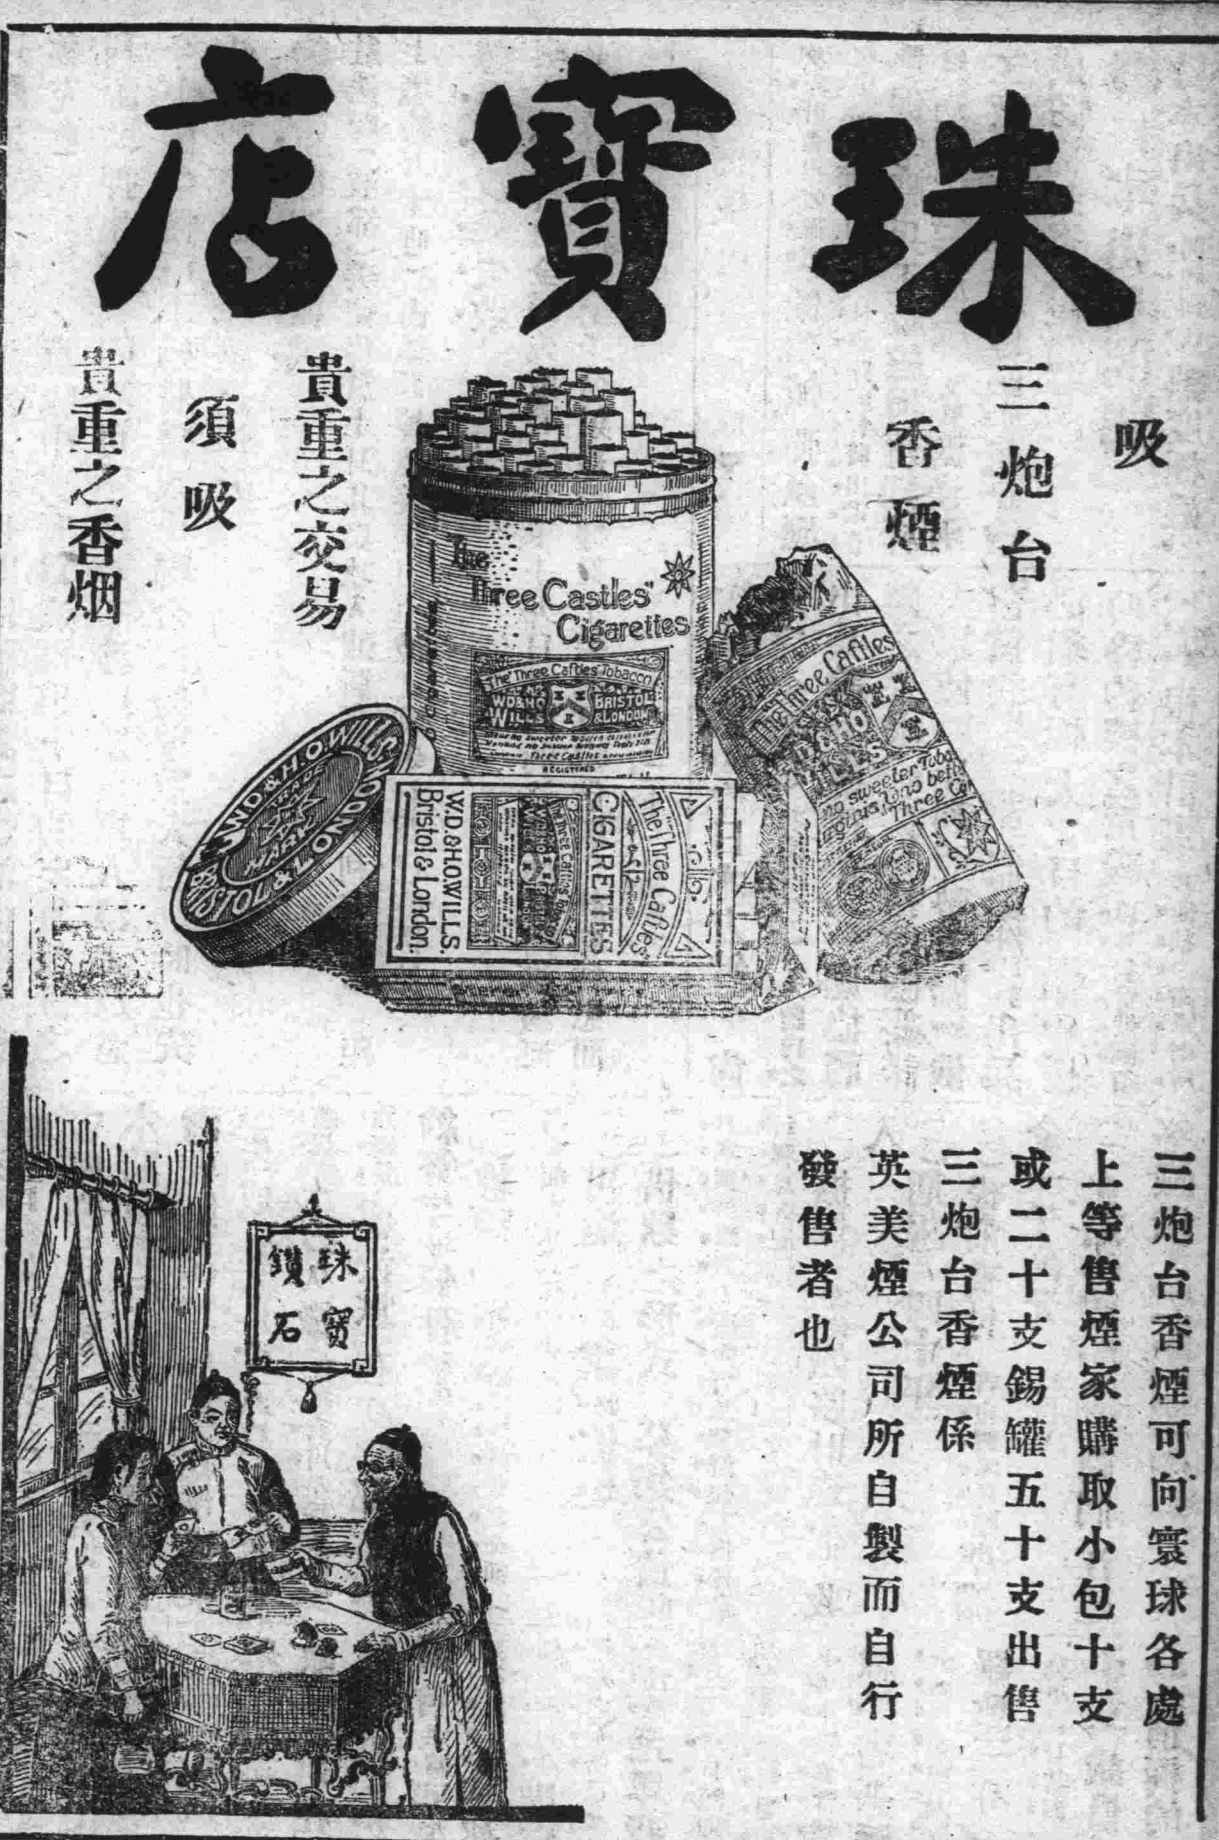 珠寶店
吸
三炮台
香煙
貴重之交易
須吸
貴重之香烟
The
Three Castles"
Cigarettes
The Three Castles Tobacco
W.D.& H.O.
WILLS
BRISTOL
& LONDON
REGISTERED
W.D.& H.O. WILLS
BRISTOL & LONDON
TRADE
MARK
The Three Castles
CIGARETTES
W.D.&H.O.WILLS.
Bristol & London.
The Three Castles
W.D.& H.O.
WILLS
no sweeter Toba
Three Ca
三炮台香煙可向寰球各處
上等售煙家購取小包十支
或二十支錫罐五十支出售
三炮台香煙係
英美煙公司所自製而自行
發售者也
珠寶
鑽石